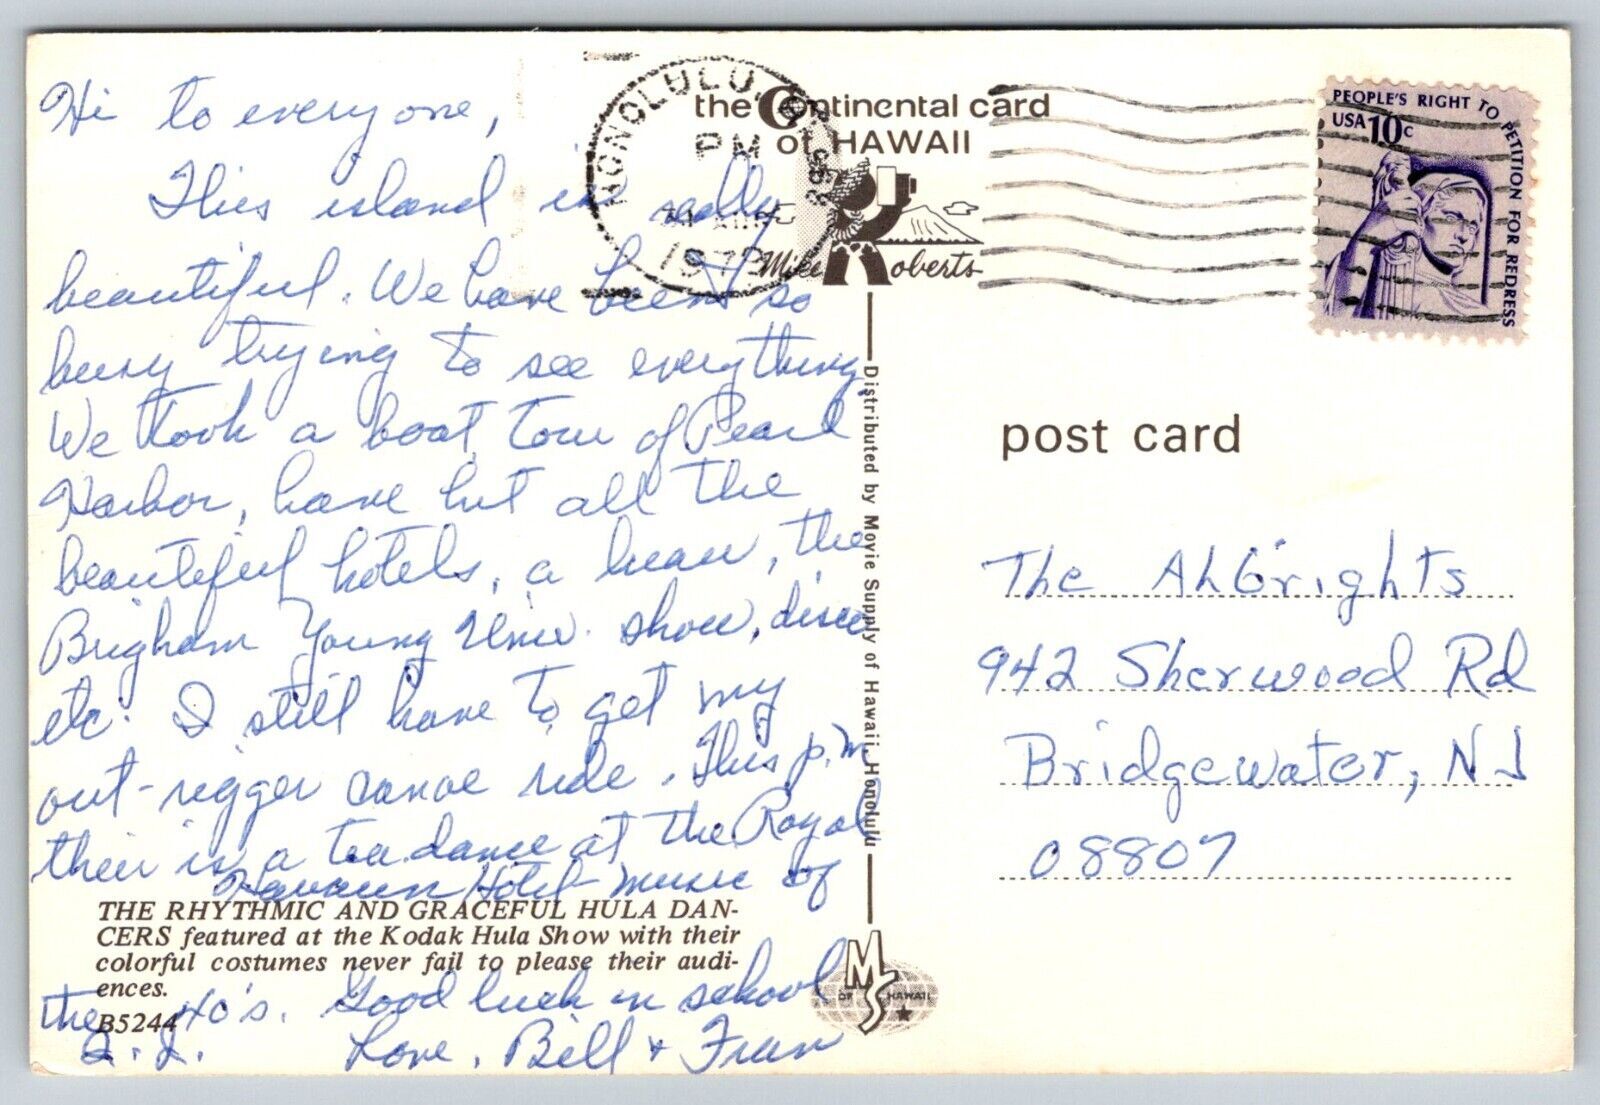 Hi to everyone,
This island is really
beautiful. We have been so
busy trying to see everything.
We took a boat tour of Pearl
Harbor, have hit all the
beautiful hotels, a luau, the
Brigham Young Univ. show, disco
etc. I still have to get my
out-rigger canoe ride. This p.m.
their is a tea dance at the Royal
Hawaiian Hotel music of
the 40's. Good luck in school
Love, Bill + Fran
THE RHYTHMIC AND GRACEFUL HULA DAN-
CERS featured at the Kodak Hula Show with their
colorful costumes never fail to please their audi-
ences.
B5244
HONOLULU
PM
the Continental card
of HAWAII
Mike Roberts
Distributed by Movie Supply of Hawaii, Honolulu
MS
OF HAWAII
PEOPLE'S RIGHT TO PETITION FOR REDRESS
USA 10c
post card
The Ahbrights
942 Sherwood Rd
Bridgewater, NJ
08807